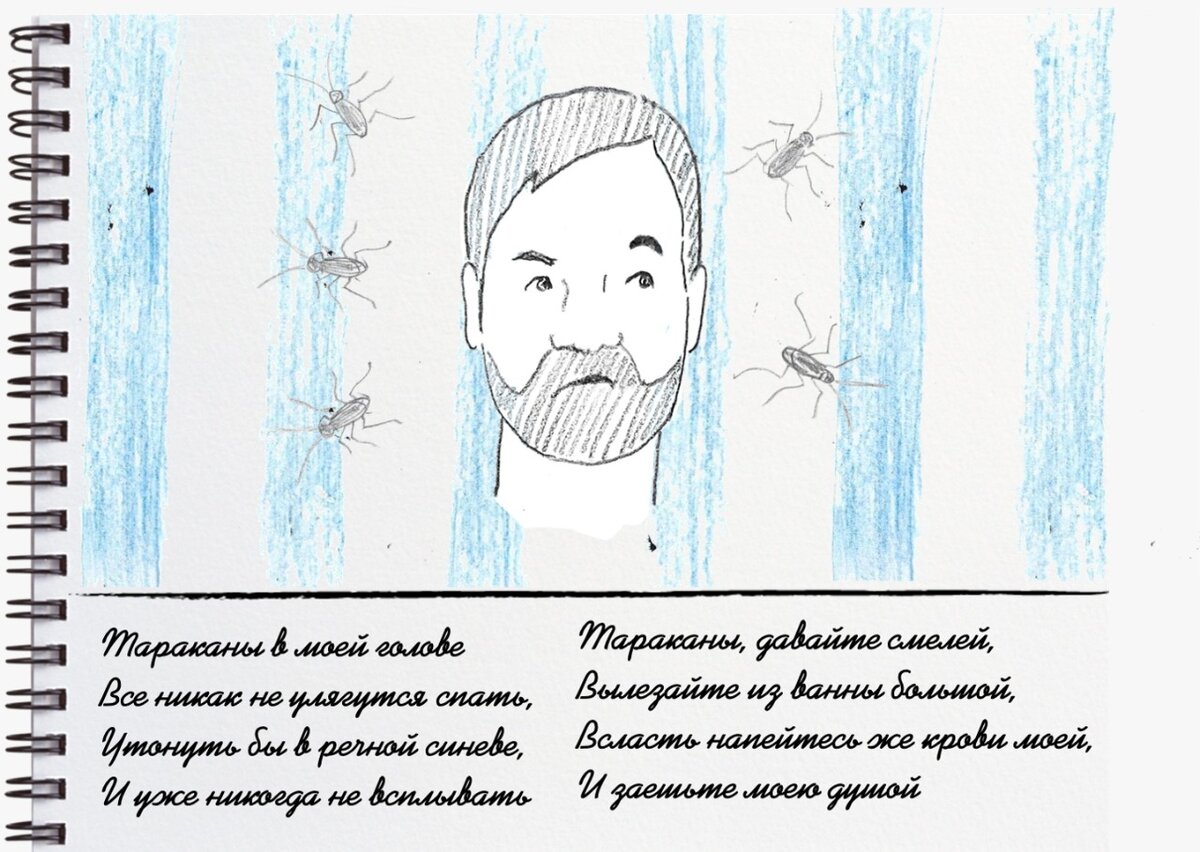 Тараканы в моей голове
Все никак не улягутся спать,
Утонуть бы в речной синеве,
И уже никогда не всплывать
Тараканы, давайте смелей,
Вылезайте из ванны большой,
Всласть напейтесь же крови моей,
И заешьте моею душой